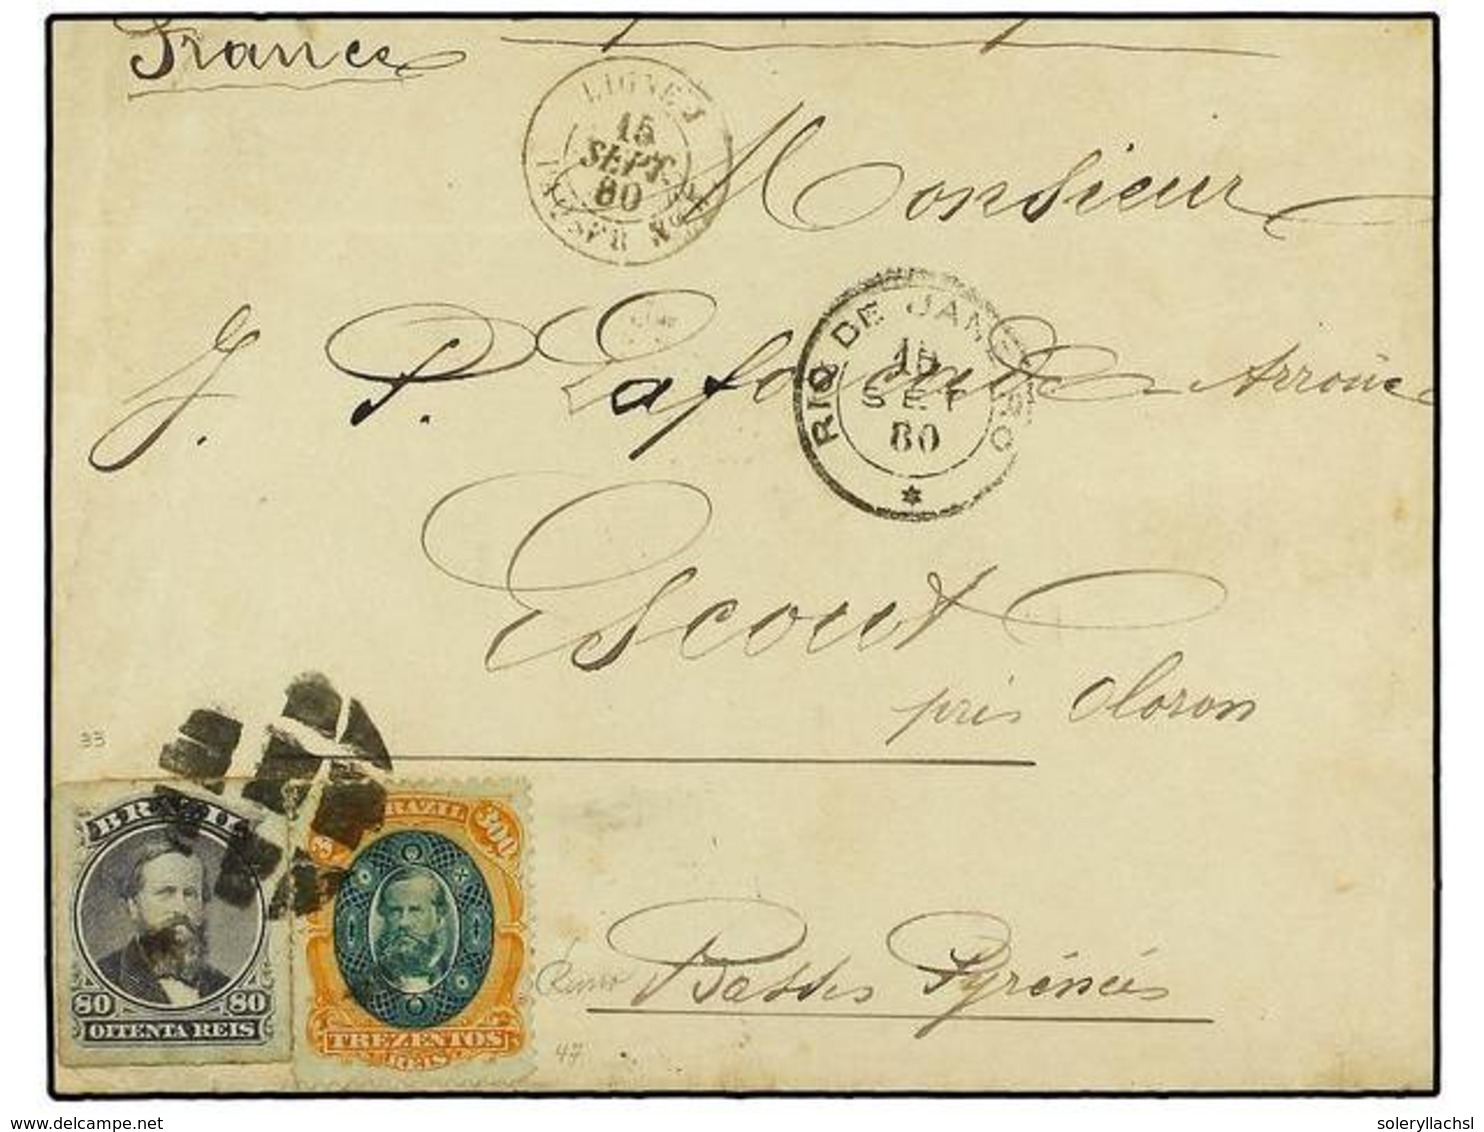 France
LIGNE J
15
SEPT.
80
PAQ. FR. Nº
Monsieur
RIO DE JANEIRO
15
SET
80
J. P. Lafourcade Arroue
Escout
près Oloron
33
BRAZIL
80 80
OITENTA REIS
BRAZIL
300
TREZENTOS
REIS
47
Basses Pyrénées
soleryllachsl